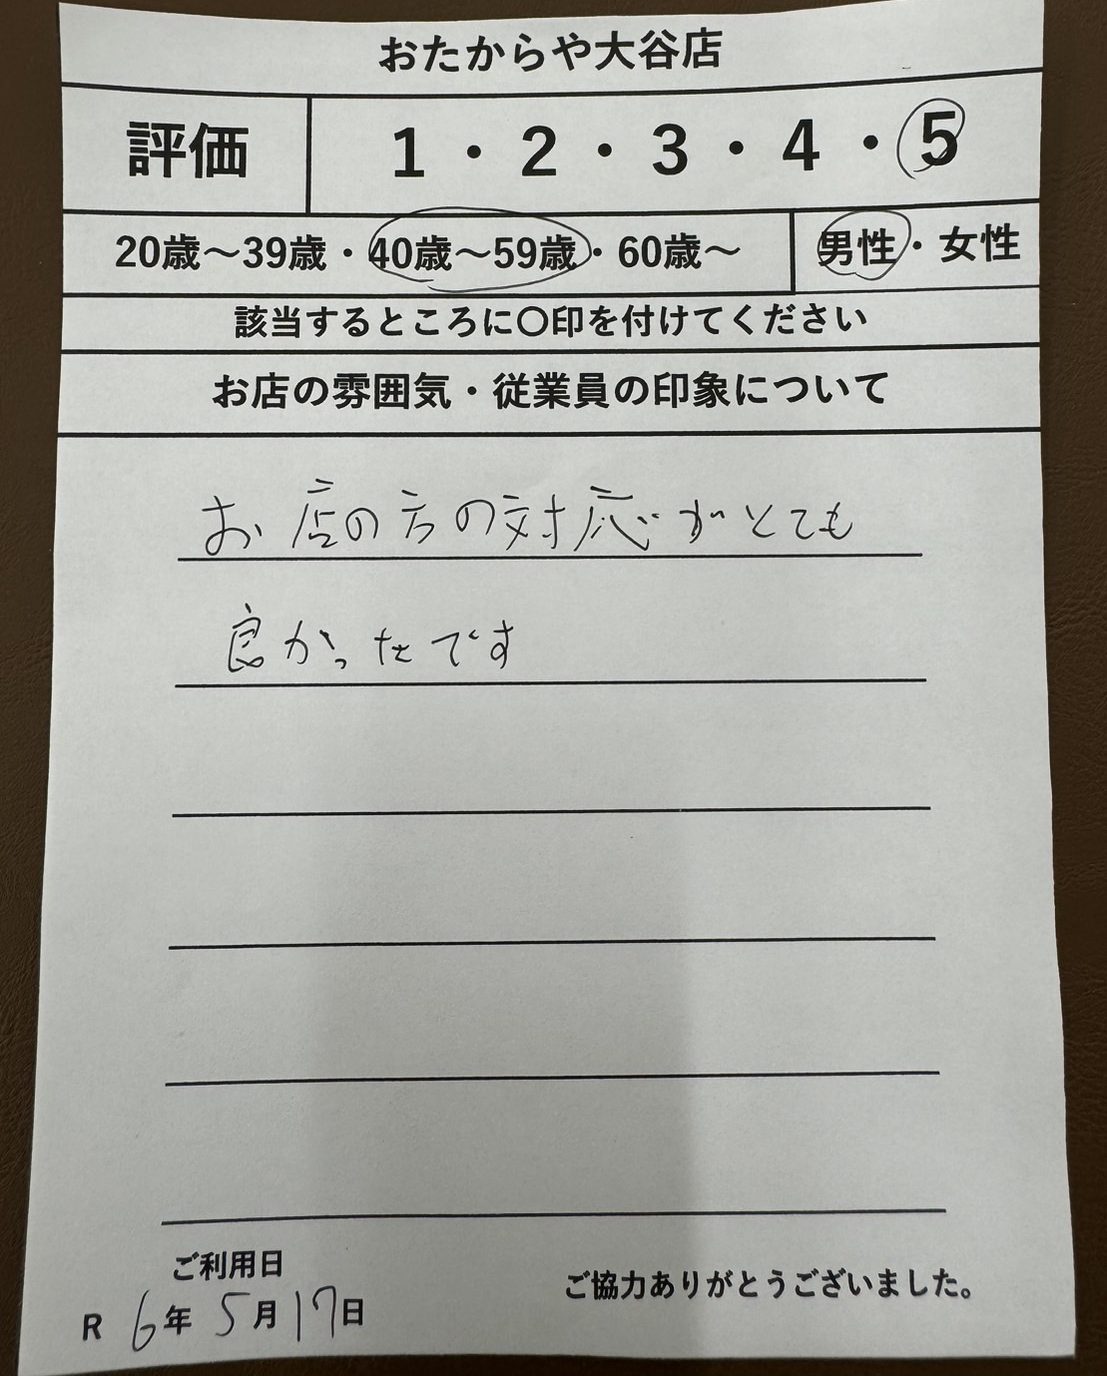 おたからや大谷店
評価 1・2・3・4・5
20歳～39歳・40歳～59歳・60歳～ 男性・女性
該当するところに〇印を付けてください
お店の雰囲気・従業員の印象について
お店の方の対応がとても
良かったです
ご利用日
ご協力ありがとうございました。
R 6年 5月17日